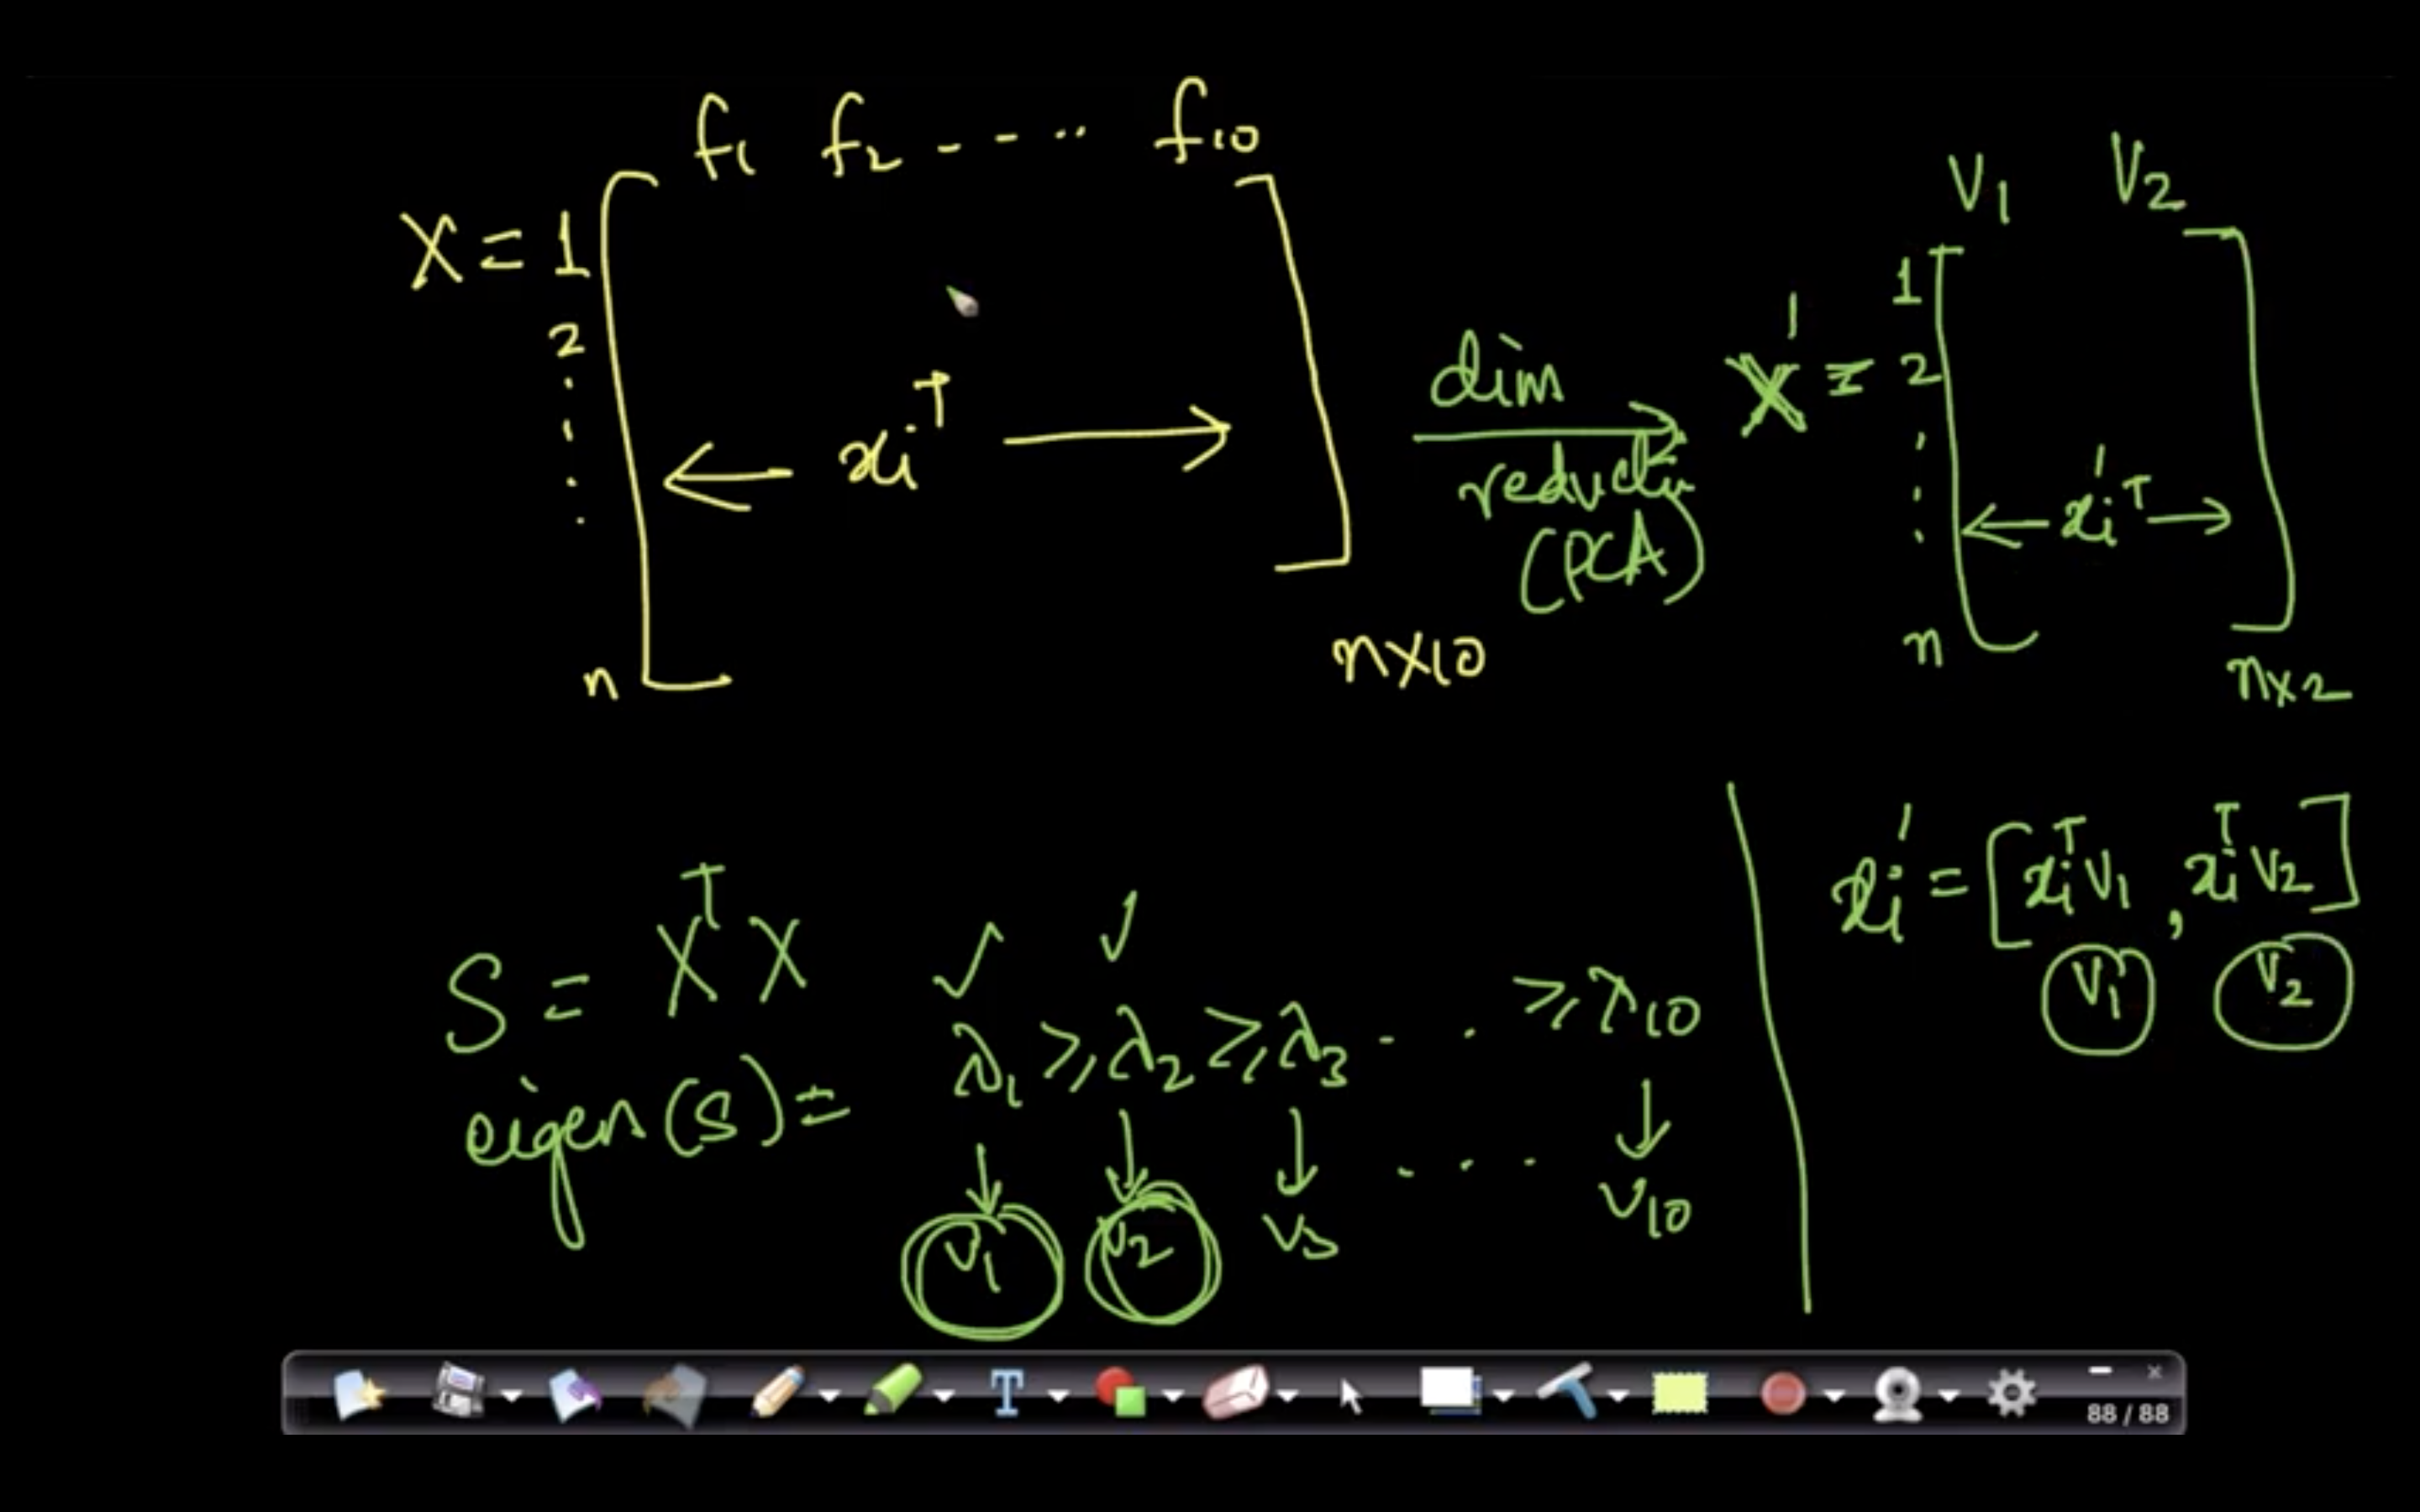 f₁ f₂ - - - ·· f₁₀
X = 1
2
.
.
.
.
n
xᵢᵀ
n×10
dim
(PCA)
V₁ V₂
X' = 1
2
.
.
.
n
xᵢ'ᵀ
n×2
S = XᵀX ✓ ✓
eigen(S) = λ₁ ≥ λ₂ ≥ λ₃ - · · ≥ λ₁₀
V₁ V₂ V₃ · · · V₁₀
xᵢ' = [xᵢᵀV₁, xᵢᵀV₂]
V₁ V₂
T
88 / 88